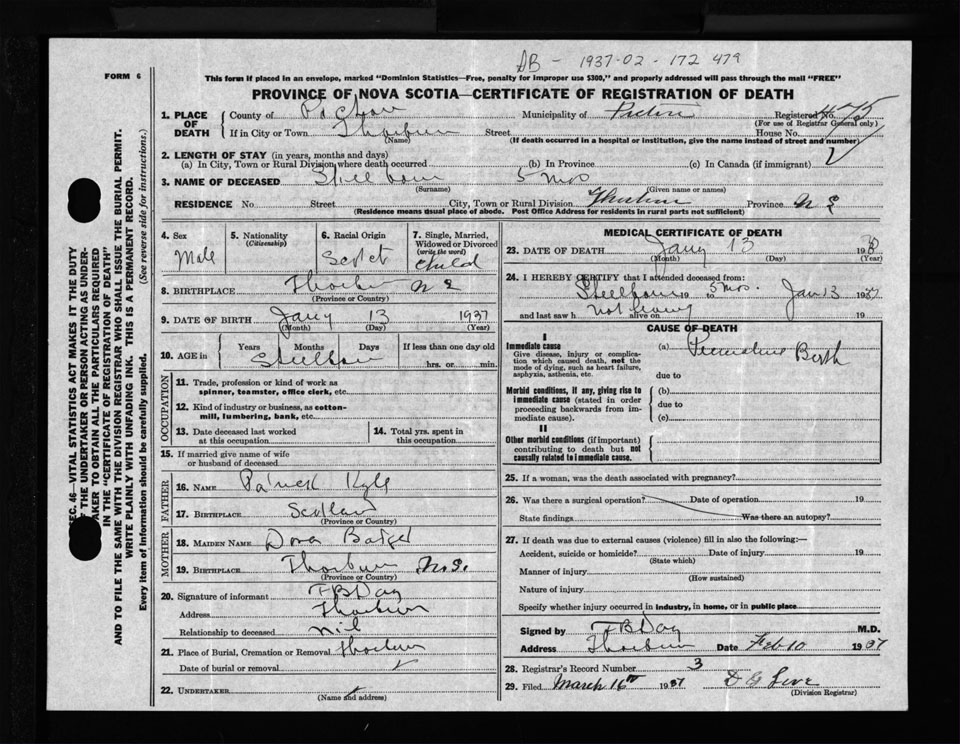 DB - 1937-02-172 479
FORM 6
This form if placed in an envelope, marked "Dominion Statistics—Free, penalty for improper use $300," and properly addressed will pass through the mail "FREE"
PROVINCE OF NOVA SCOTIA—CERTIFICATE OF REGISTRATION OF DEATH
1. PLACE OF DEATH
County of Pictou Municipality of Pictou Registered No.
(For use of Registrar General only)
If in City or Town Thorburn Street House No.
(Name) (If death occurred in a hospital or institution, give the name instead of street and number)
2. LENGTH OF STAY (in years, months and days)
(a) In City, Town or Rural Division where death occurred (b) In Province (c) In Canada (if immigrant)
3. NAME OF DECEASED Stillborn 5 mos
(Surname) (Given name or names)
RESIDENCE No. Street City, Town or Rural Division Thorburn Province N S
(Residence means usual place of abode. Post Office Address for residents in rural parts not sufficient)
4. Sex
Male
5. Nationality
(Citizenship)
6. Racial Origin
Scotch
7. Single, Married, Widowed or Divorced
(write the word)
child
8. BIRTHPLACE Thorburn N S
(Province or Country)
9. DATE OF BIRTH Jany 13 1937
(Month) (Day) (Year)
10. AGE in Years Months Days If less than one day old
Stillborn hrs. or min.
OCCUPATION
11. Trade, profession or kind of work as spinner, teamster, office clerk, etc.
12. Kind of industry or business, as cotton-mill, lumbering, bank, etc.
13. Date deceased last worked at this occupation
14. Total yrs. spent in this occupation
15. If married give name of wife or husband of deceased
FATHER
16. NAME Patrick Kyle
17. BIRTHPLACE Scotland
(Province or Country)
MOTHER
18. MAIDEN NAME Dora
19. BIRTHPLACE Thorburn N.S.
(Province or Country)
20. Signature of informant F B Day
Address Thorburn
Relationship to deceased nil
21. Place of Burial, Cremation or Removal Thorburn
Date of burial or removal
22. UNDERTAKER
(Name and address)
MEDICAL CERTIFICATE OF DEATH
23. DATE OF DEATH Jany 13 193
(Month) (Day) (Year)
24. I HEREBY CERTIFY that I attended deceased from:
Stillborn 19 to 5 mos. Jan 13 1937
and last saw h not living alive on 19
CAUSE OF DEATH
I
Immediate cause
Give disease, injury or complication which caused death, not the mode of dying, such as heart failure, asphyxia, asthenia, etc.
(a) Premature Birth
due to
Morbid conditions, if any, giving rise to immediate cause (stated in order proceeding backwards from immediate cause).
(b)
due to
(c)
II
Other morbid conditions (if important) contributing to death but not causally related to immediate cause.
25. If a woman, was the death associated with pregnancy?
26. Was there a surgical operation? Date of operation 19
State findings Was there an autopsy?
27. If death was due to external causes (violence) fill in also the following:—
Accident, suicide or homicide? Date of injury 19
(State which)
Manner of injury
(How sustained)
Nature of injury
Specify whether injury occurred in industry, in home, or in public place
Signed by F B Day M.D.
Address Thorburn Date Feb 10 1937
28. Registrar's Record Number 3
29. Filed March 16th 1937
(Division Registrar)
SEC. 46—VITAL STATISTICS ACT MAKES IT THE DUTY
OF THE UNDERTAKER OR PERSON ACTING AS UNDERTAKER TO OBTAIN ALL THE PARTICULARS REQUIRED
IN THE "CERTIFICATE OF REGISTRATION OF DEATH"
AND TO FILE THE SAME WITH THE DIVISION REGISTRAR WHO SHALL ISSUE THE BURIAL PERMIT.
WRITE PLAINLY WITH UNFADING INK. THIS IS A PERMANENT RECORD.
Every item of information should be carefully supplied. (See reverse side for instructions.)